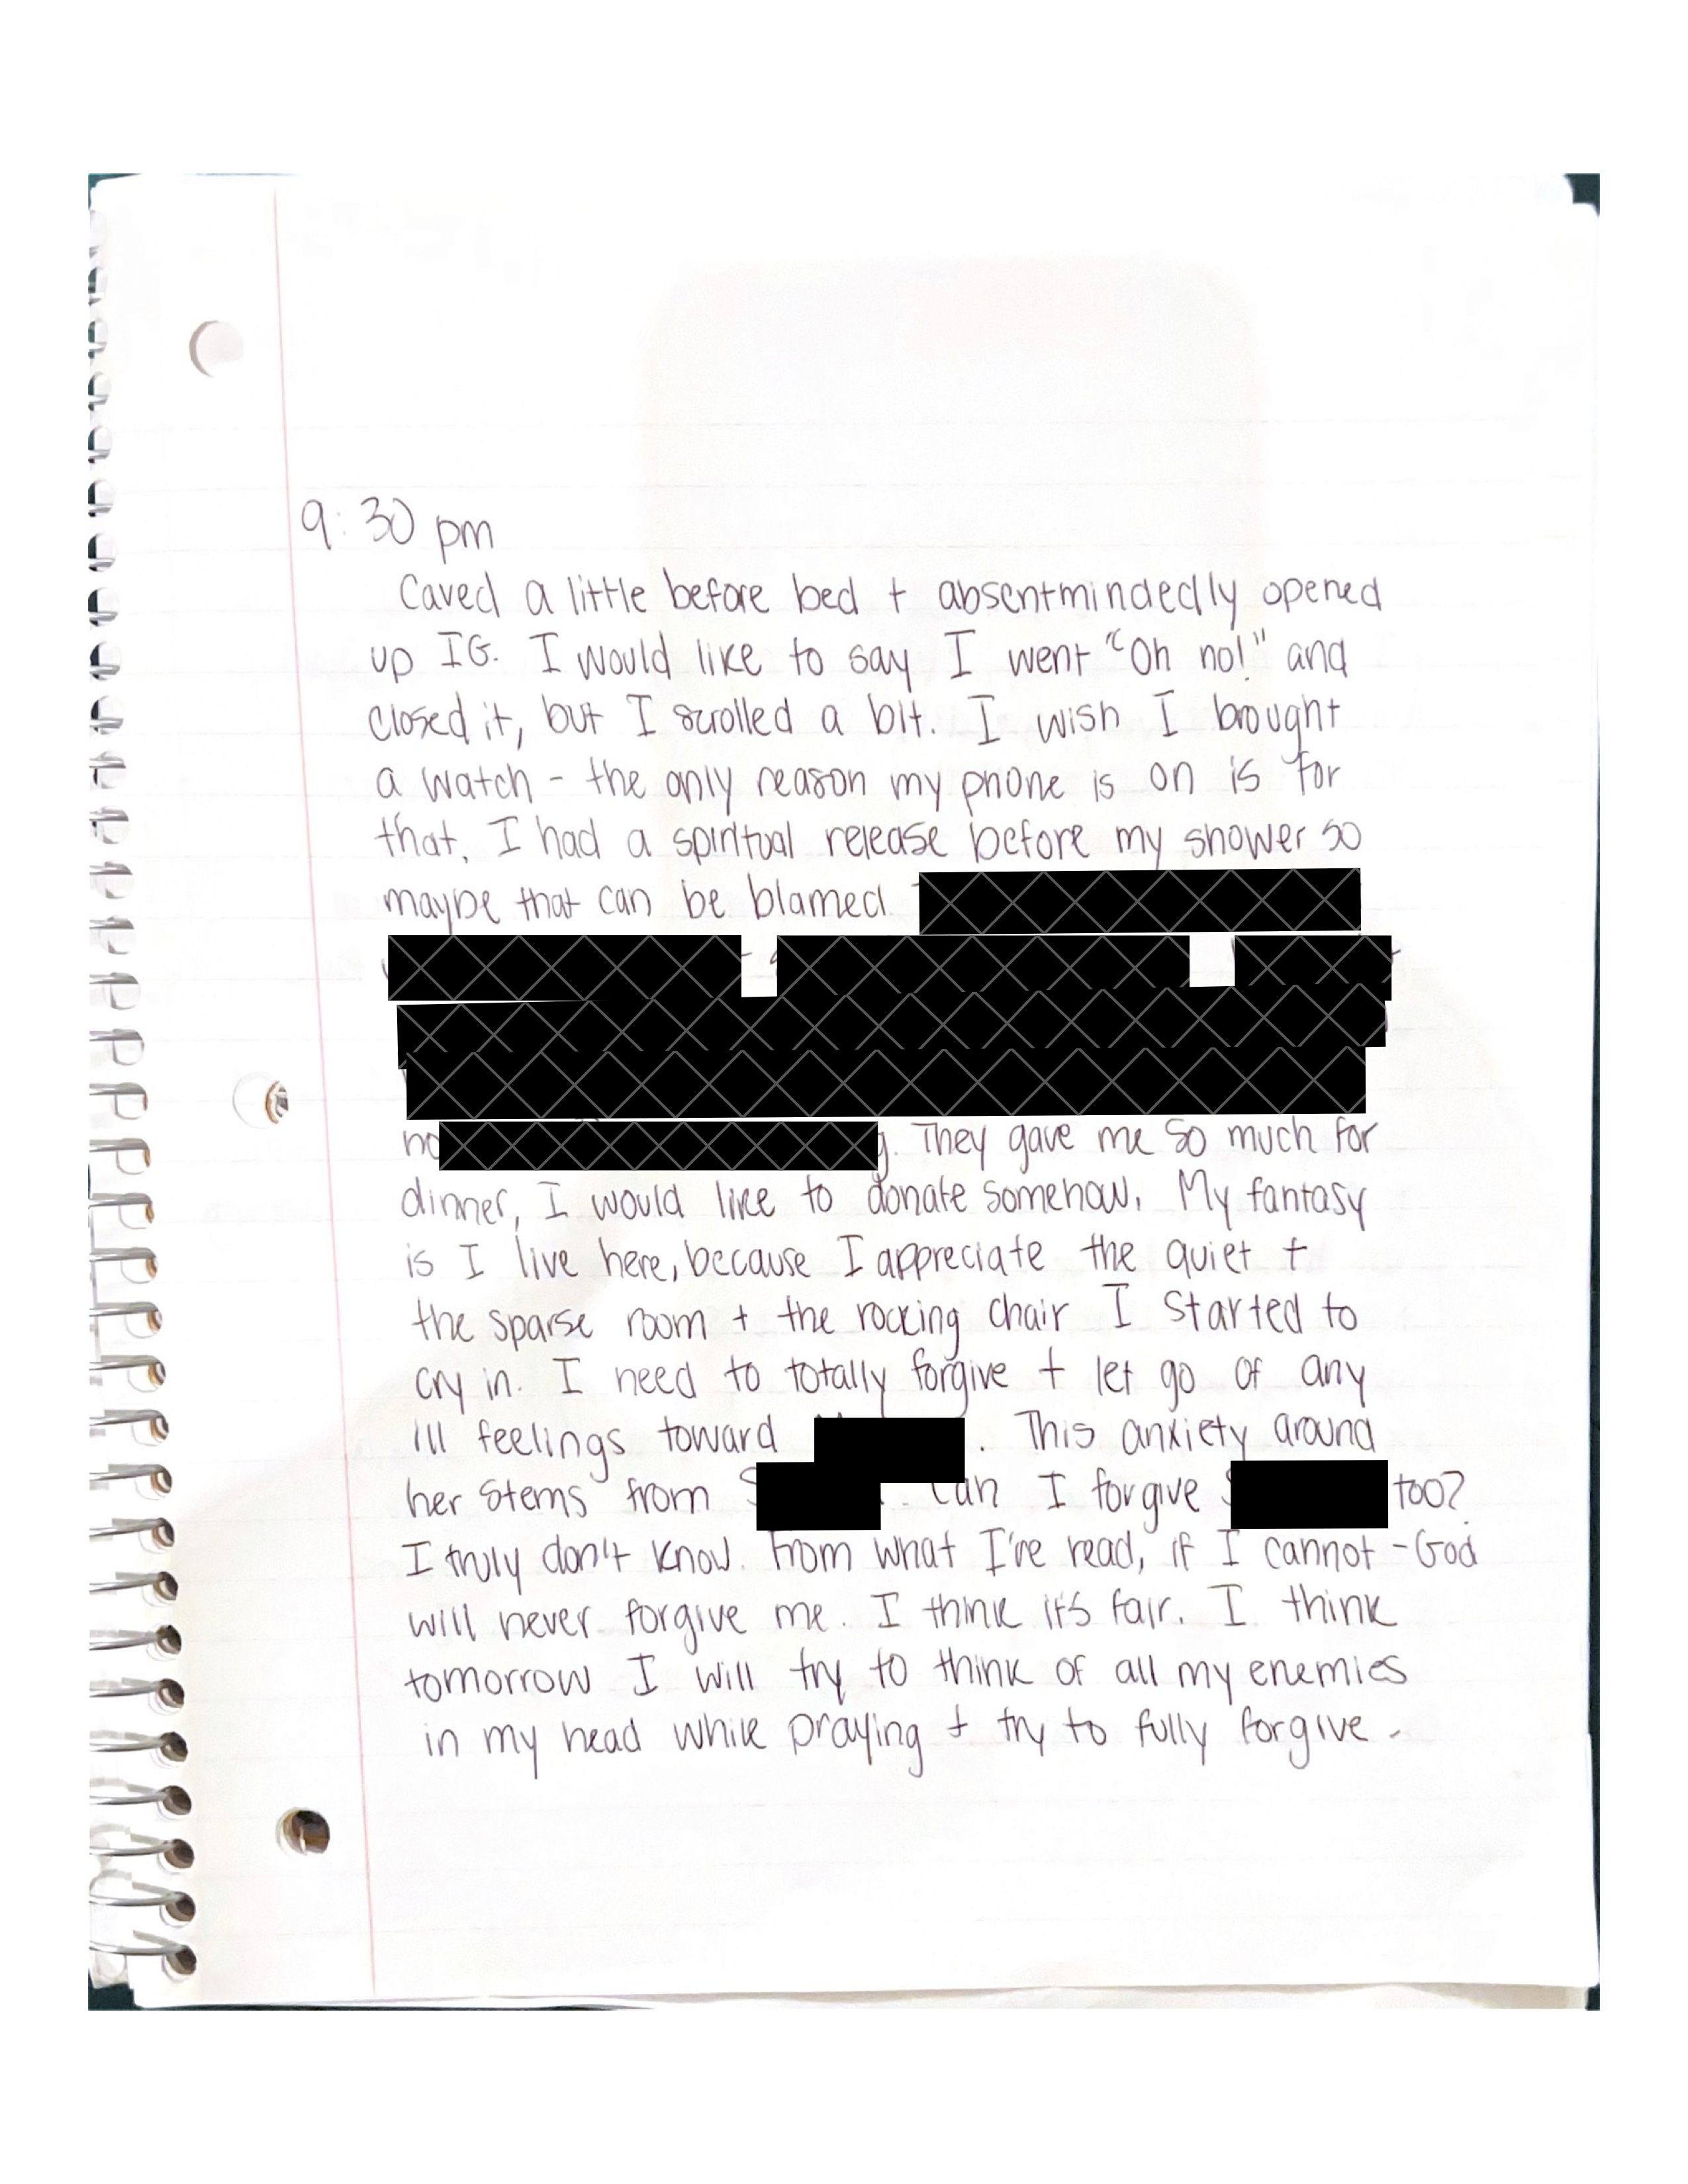 9:30 pm
Caved a little before bed + absentmindedly opened
up IG. I would like to say I went "Oh no!" and
closed it, but I scrolled a bit. I wish I brought
a watch - the only reason my phone is on is for
that. I had a spiritual release before my shower so
maybe that can be blamed.
They gave me so much for
dinner, I would like to donate somehow. My fantasy
is I live here, because I appreciate the quiet +
the sparse room + the rocking chair I started to
cry in. I need to totally forgive + let go of any
ill feelings toward . This anxiety around
her stems from . Can I forgive too?
I truly don't know. From what I've read, if I cannot - God
will never forgive me. I think it's fair. I think
tomorrow I will try to think of all my enemies
in my head while praying + try to fully forgive -